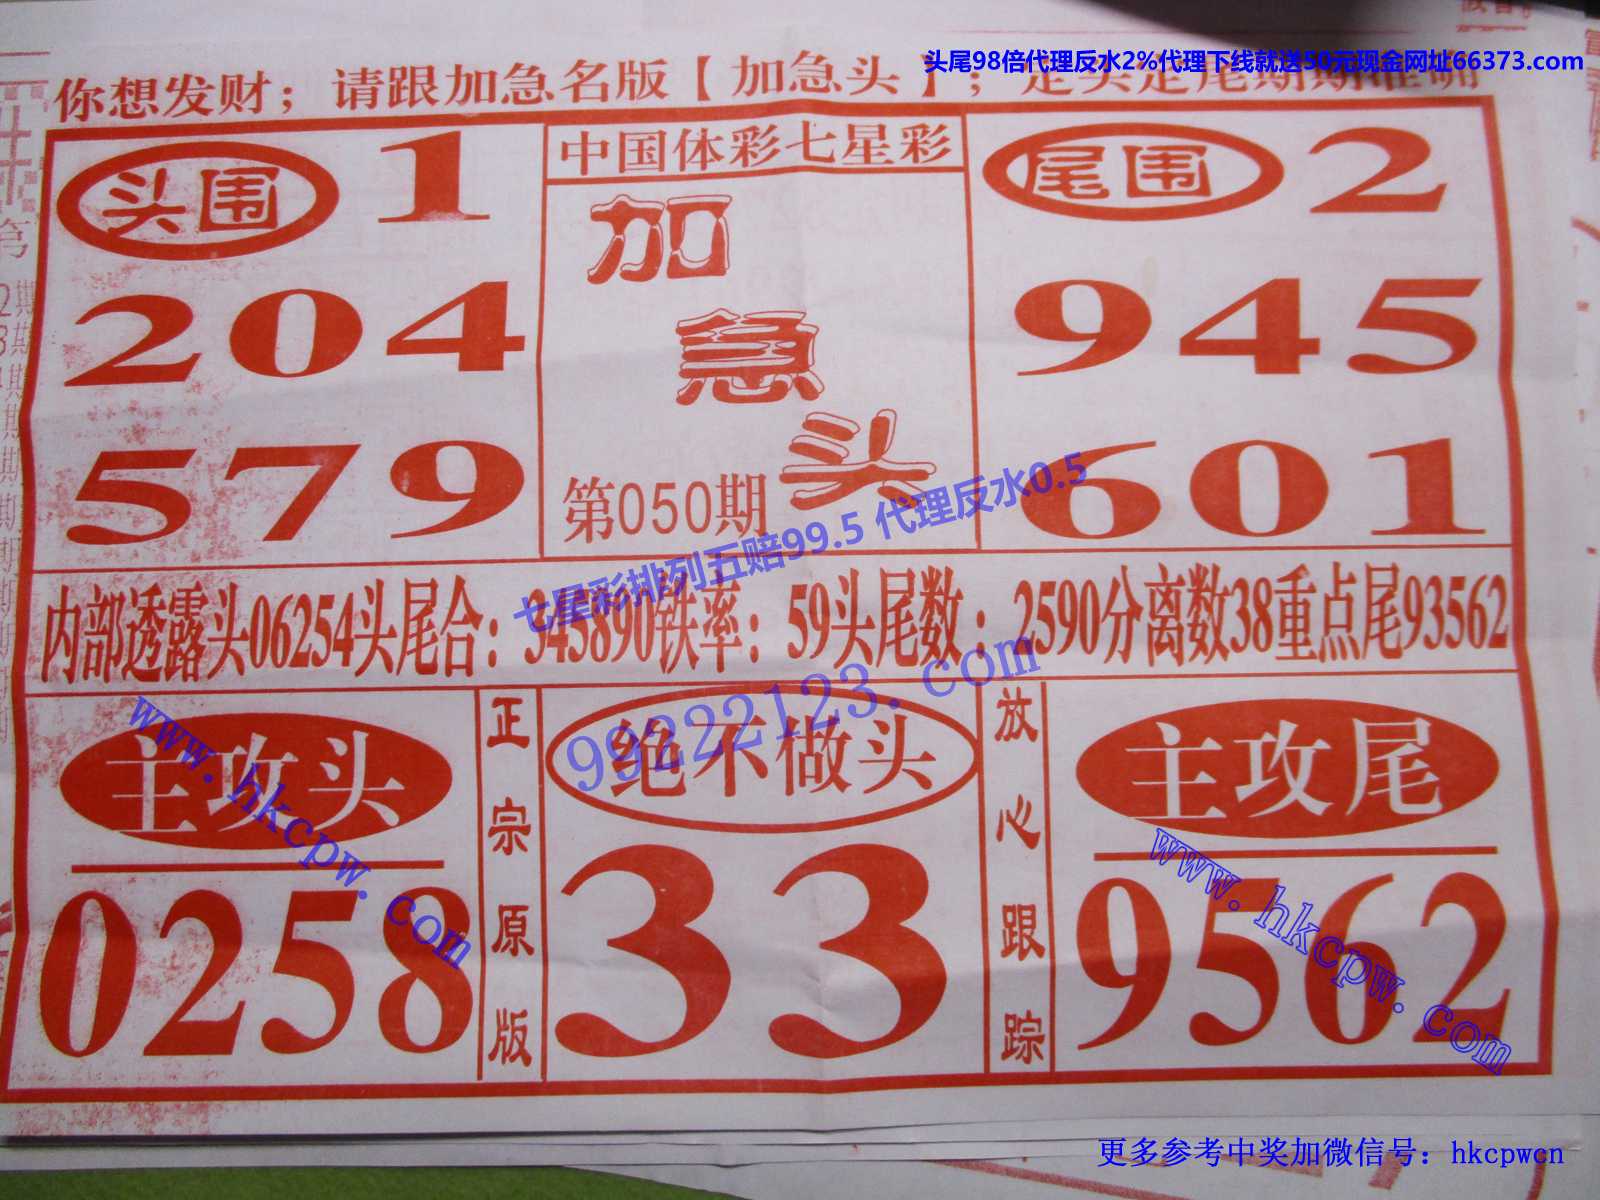 头尾98倍代理反水2%代理下线就送50元现金网址66373.com
你想发财；请跟加急名版【加急头】；
头围 1
204
579
中国体彩七星彩
加
急
头
第050期
尾围 2
945
601
七星彩排列五赔99.5 代理反水0.5
内部透露头06254头尾合：345890铁率：59头尾数：2590分离数38重点尾93562
99222123.com
www.hkcpw.com
主攻头
0258
正宗原版
绝不做头
33
放心跟踪
主攻尾
9562
www.hkcpw.com
更多参考中奖加微信号：hkcpwcn